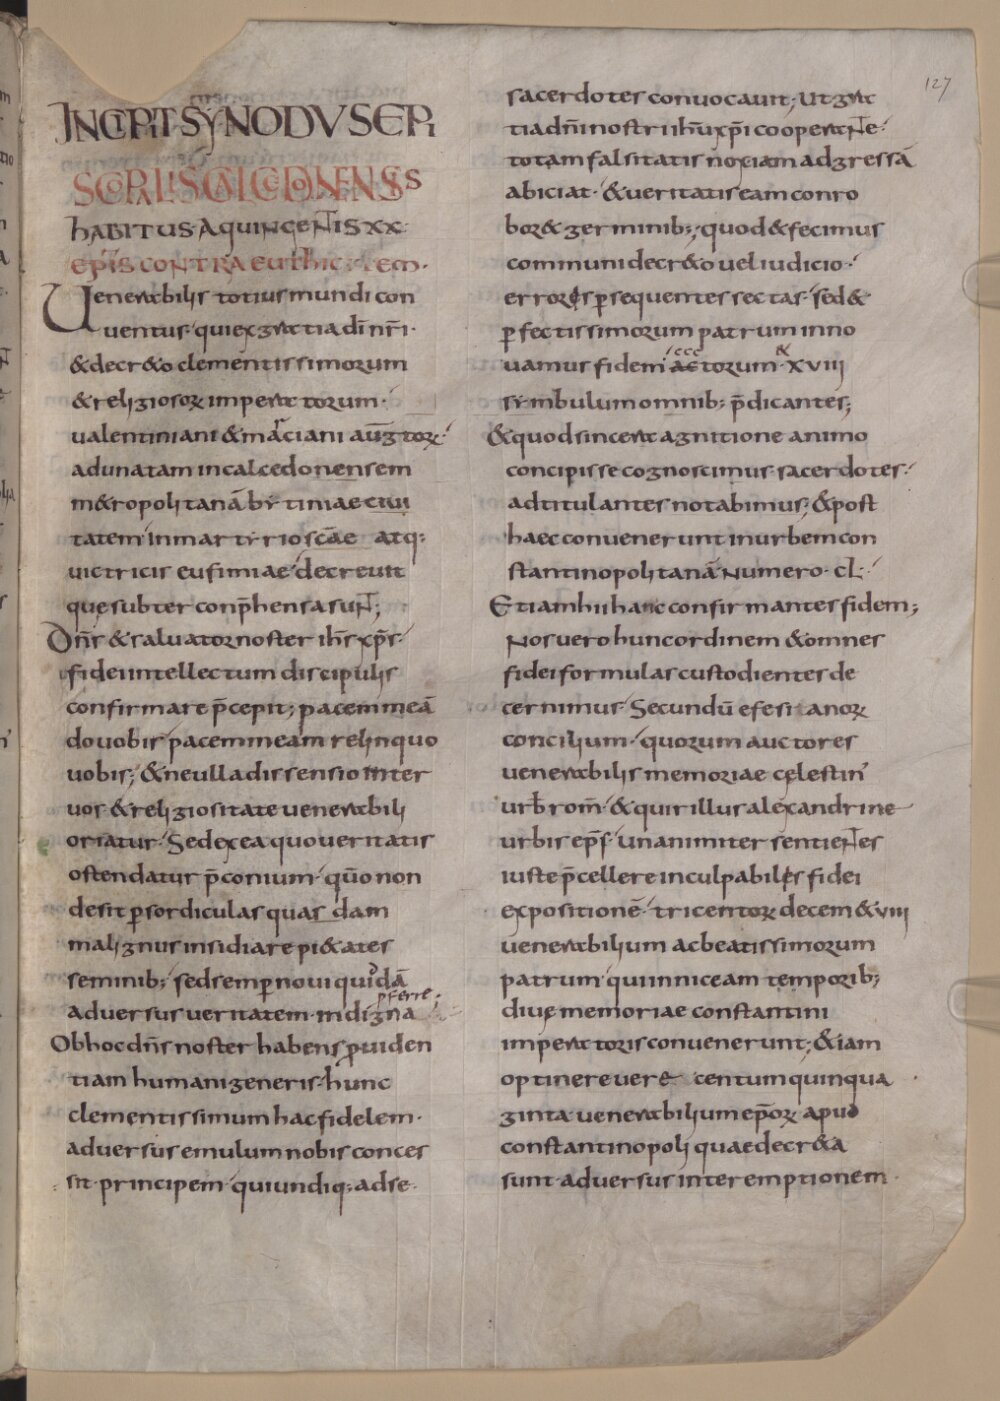 INCIPIT SYNODUS EPI
SCOPALIS CALCEDONENSIS
HABITUS A quiNgeNTIS XX
epis CONTRA euthicetem.
Uenerabilis totius mundi con
uentus qui ex gratia di nri.
& decr&o clementissimorum
& religiosorum imperatorum.
ualentiniani & marciani augtorum
adunatam in calcedonensem
m&ropolitanā bytiniae ciui
tatem in martyrio scāe atq;
uictricis eufimiae decreuit
que subter conp̄hensa suNT;
Dn̄s & saluator noster ih̄s xp̄s
fidei intellectum discipulis
confirmare p̄cepit; pacem meā
do uobis pacem meam relinquo
uobis; & ne ulla dissensio inter
uos & religiositate uenerabili
oriatur Sed ex ea quo ueritatis
ostendatur p̄conium qūo non
desit p sordiculas quasdam
malignus insidiare pi&ates
seminib; sed semper noui quiddā
pferre;
aduersus ueritatem indigna
Ob hoc dn̄s noster habens puiden
tiam humani generis hunc
clementissimum hac fidelem.
aduersus emulum nobis conces
sit principem qui undiq; ad se.
127
sacerdotes conuocauit; ut gra
tia dn̄i nostri ih̄u xp̄i cooperaNTe
totam falsitatis noxiam ad gressā
abiciat. & ueritatis eam conro
bor& germinib; quod & fecimus
communi decr&o uel iudicio
errores psequentes sectas sed &
pfectissimorum patrum inno
uamus fidem ccc torum XVIII
symbulum omnib; p̄dicantes;
& quod sincera agnitione animo
concipisse cognoscimus sacerdotes
ad titulantes notabimus; & post
haec conuenerunt in urbem con
stantinopolitanā Numero. CL.
Etiam hii hanc confirmantes fidem;
Nos uero hunc ordinem & omnes
fidei formulas custodientes de
cernimus Secundū efesitanorum
concilium quorum auctores
uenerabilis memoriae celestin
urb rom & quirillus alexandrine
urbis ep̄s unanimiter sentieNTes
iuste p̄cellere inculpabiles fidei
expositionē tricentorum decem & viii
uenerabilium ac beatissimorum
patrum qui in niceam temporib;
diue memoriae constantini
imperatoris conuenerunt; & iam
optinere uere centum quinqua
ginta uenerabilium ep̄orum apud
constantinopoli quae decr&a
sunt aduersus interemptionem